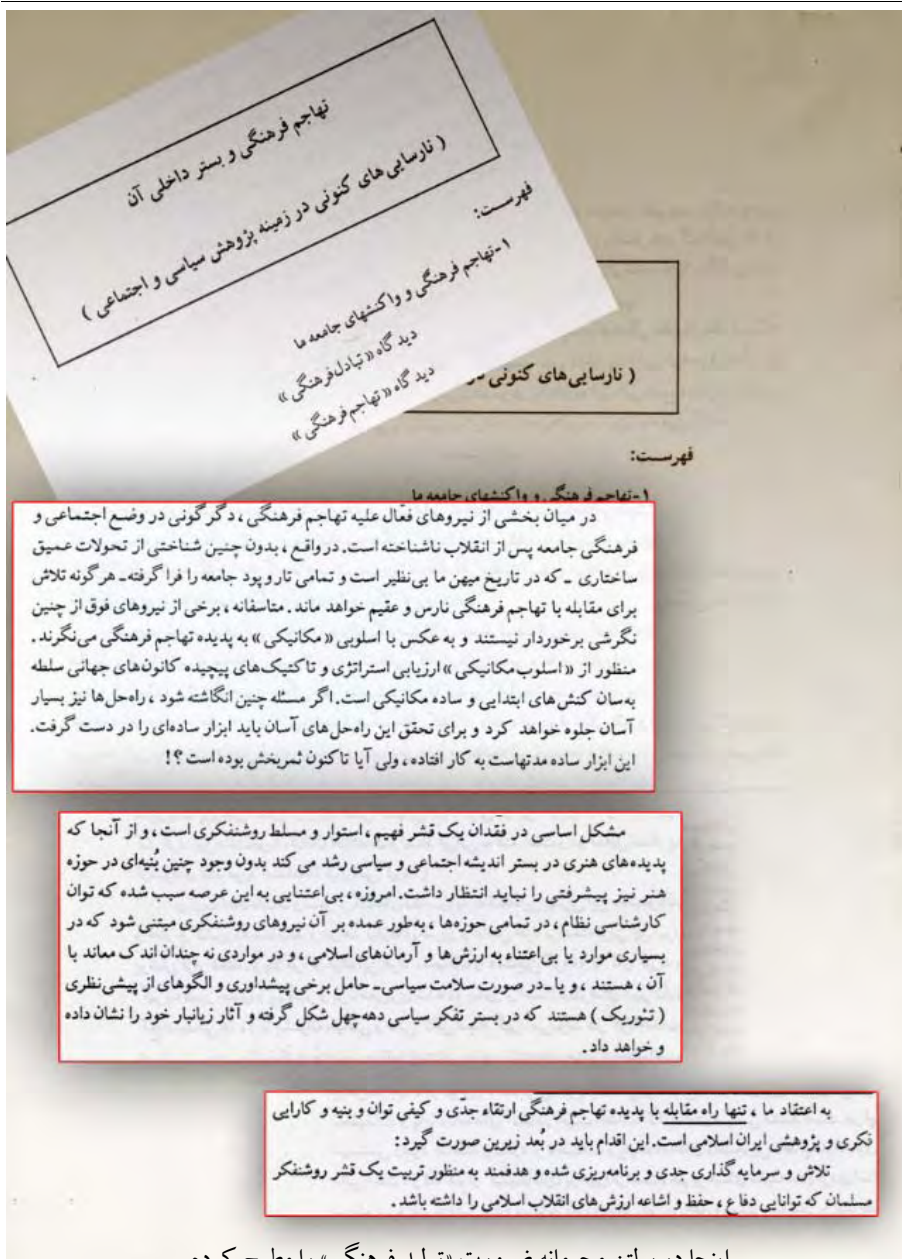 تهاجم فرهنگی و بستر داخلی آن
( نارسایی‌های کنونی در زمینه پژوهش سیاسی و اجتماعی )
فهرست:
۱-تهاجم فرهنگی و واکنشهای جامعه ما
دیدگاه «تبادل فرهنگی»
دیدگاه «تهاجم فرهنگی»
( نارسایی‌های کنونی در
فهرست:
۱-تهاجم فرهنگی و واکنشهای جامعه ما
در میان بخشی از نیروهای فعّال علیه تهاجم فرهنگی ، دگرگونی در وضع اجتماعی و
فرهنگی جامعه پس از انقلاب ناشناخته است. در واقع ، بدون چنین شناختی از تحولات عمیق
ساختاری ـ که در تاریخ میهن ما بی‌نظیر است و تمامی تار و پود جامعه را فرا گرفته ـ هر گونه تلاش
برای مقابله با تهاجم فرهنگی نارس و عقیم خواهد ماند . متاسفانه ، برخی از نیروهای فوق از چنین
نگرشی برخوردار نیستند و به عکس با اسلوبی «مکانیکی» به پدیده تهاجم فرهنگی می‌نگرند .
منظور از «اسلوب مکانیکی» ارزیابی استراتژی و تاکتیک‌های پیچیده کانون‌های جهانی سلطه
به‌سان کنش‌های ابتدایی و ساده مکانیکی است. اگر مسئله چنین انگاشته شود ، راه‌حل‌ها نیز بسیار
آسان جلوه خواهد کرد و برای تحقق این راه‌حل‌های آسان باید ابزار ساده‌ای را در دست گرفت.
این ابزار ساده مدتهاست به کار افتاده ، ولی آیا تاکنون ثمربخش بوده است ؟!
مشکل اساسی در فقدان یک قشر فهیم ، استوار و مسلط روشنفکری است ، و از آنجا که
پدیده‌های هنری در بستر اندیشه اجتماعی و سیاسی رشد می کند بدون وجود چنین بُنیه‌ای در حوزه
هنر نیز پیشرفتی را نباید انتظار داشت. امروزه ، بی‌اعتنایی به این عرصه سبب شده که توان
کارشناسی نظام ، در تمامی حوزه‌ها ، به‌طور عمده بر آن نیروهای روشنفکری مبتنی شود که در
بسیاری موارد یا بی‌اعتناء به ارزش‌ها و آرمان‌های اسلامی ، و در مواردی نه چندان اندک معاند با
آن ، هستند ، و یا ـ در صورت سلامت سیاسی ـ حامل برخی پیشداوری و الگوهای از پیشی‌نظری
( تئوریک ) هستند که در بستر تفکر سیاسی دهه چهل شکل گرفته و آثار زیانبار خود را نشان داده
و خواهد داد .
به اعتقاد ما ، تنها راه مقابله با پدیده تهاجم فرهنگی ارتقاء جدّی و کیفی توان و بنیه و کارایی
فکری و پژوهشی ایران اسلامی است. این اقدام باید در بُعد زیرین صورت گیرد :
تلاش و سرمایه گذاری جدی و برنامه‌ریزی شده و هدفمند به منظور تربیت یک قشر روشنفکر
مسلمان که توانایی دفاع ، حفظ و اشاعه ارزش های انقلاب اسلامی را داشته باشد .